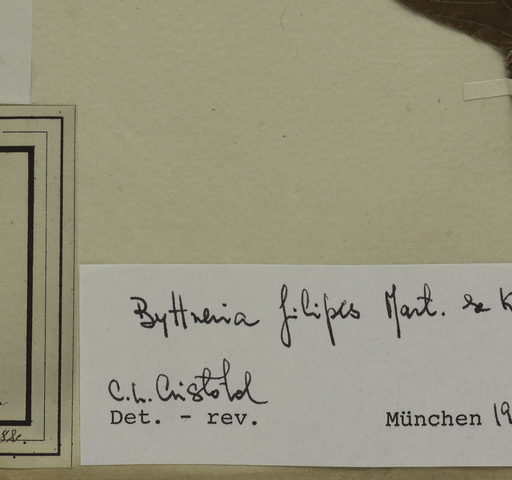 Byttneria filipes Mart. ex K
C.L. Cristóbal
Det. - rev.
München 19